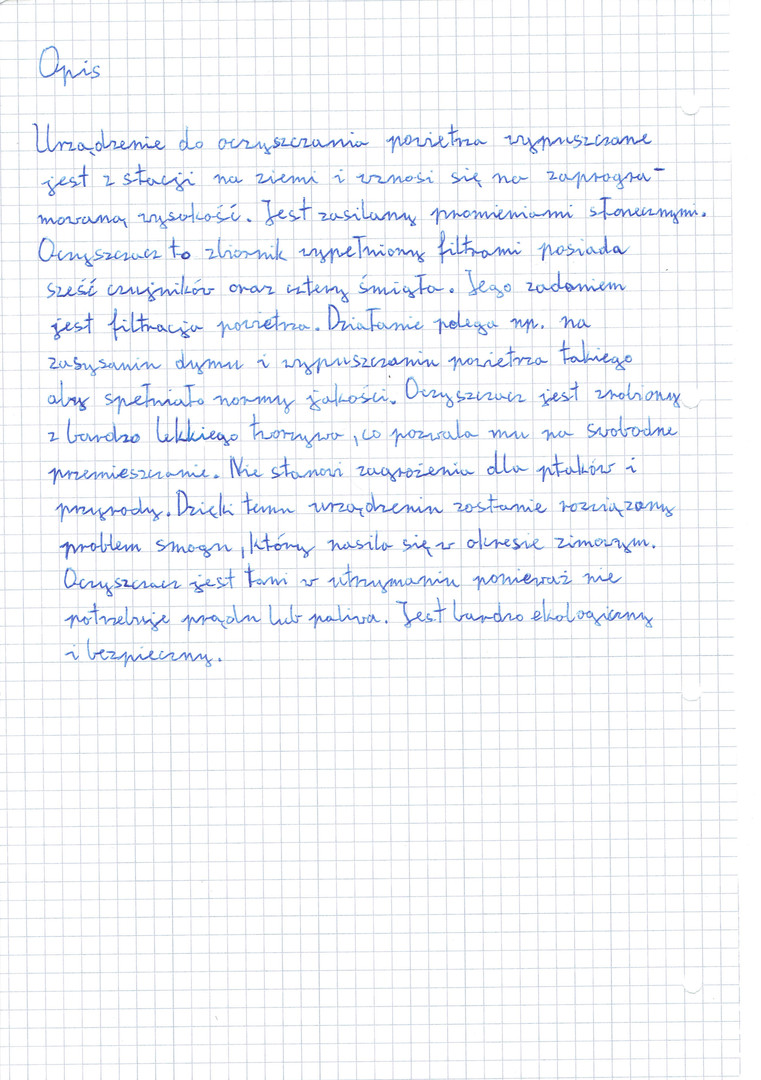 Opis
Urządzenie do oczyszczania powietrza wypuszczane
jest z stacji na ziemi i wznosi się na zaprogra-
mowaną wysokość. Jest zasilany promieniami słonecznymi.
Oczyszczacz to zbiornik wypełniony filtrami posiada
sześć czujników oraz cztery śmigła. Jego zadaniem
jest filtracja powietrza. Działanie polega np. na
zasysaniu dymu i wypuszczaniu powietrza takiego
aby spełniało normy jakości. Oczyszczacz jest zrobiony
z bardzo lekkiego tworzywa, co pozwala mu na swobodne
przemieszczanie. Nie stanowi zagrożenia dla ptaków i
przyrody. Dzięki temu urządzeniu zostanie rozwiązany
problem smogu, który nasila się w okresie zimowym.
Oczyszczacz jest tani w utrzymaniu ponieważ nie
potrzebuje prądu lub paliwa. Jest bardzo ekologiczny
i bezpieczny.